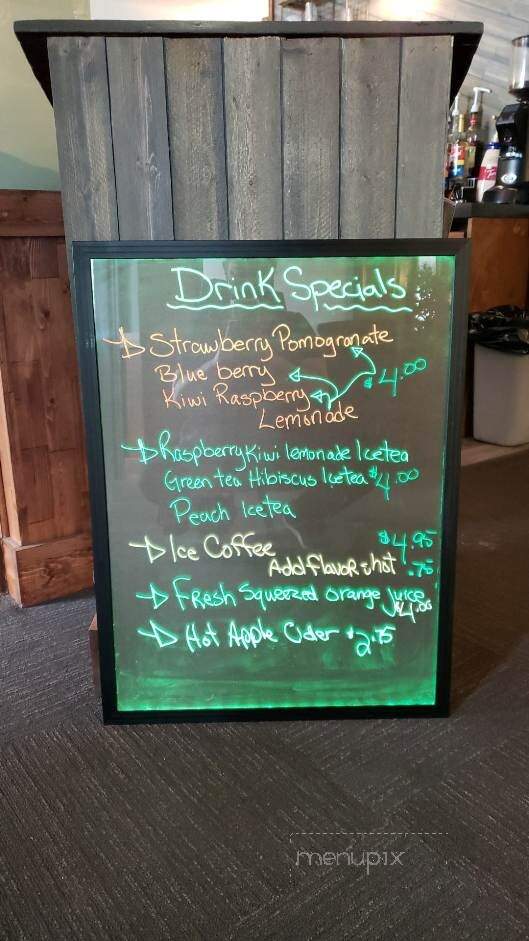 Drink Specials
Strawberry Pomogranate
Blue berry $4.00
Kiwi Raspberry
Lemonade
Raspberry Kiwi lemonade Icetea
Green tea Hibiscus Icetea $4.00
Peach Icetea
Ice Coffee $4.95
Add flavor shot .75
Fresh Squeezed orange juice
$4.00
Hot Apple Cider $2.75
menupix